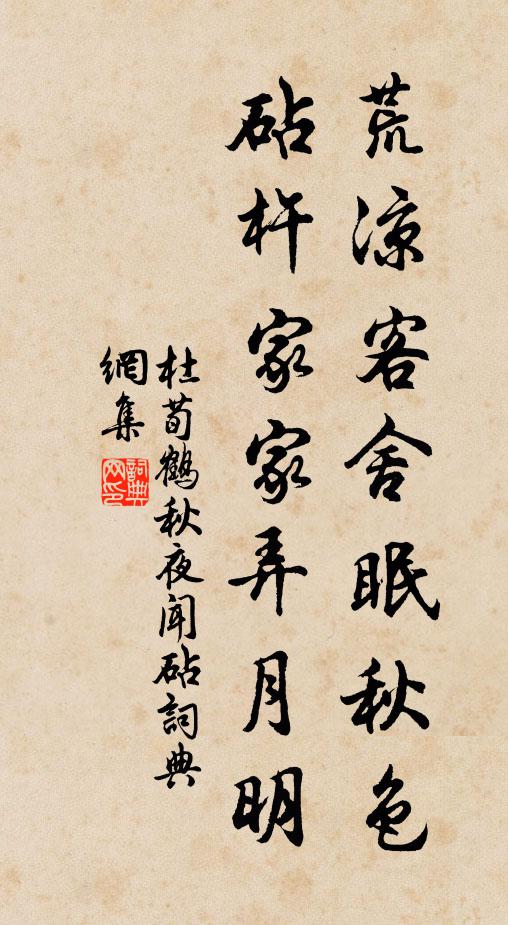 荒涼客舍眠秋色
砧杵家家弄月明
杜荀鶴秋夜聞砧詞典
網集
詞典
网印